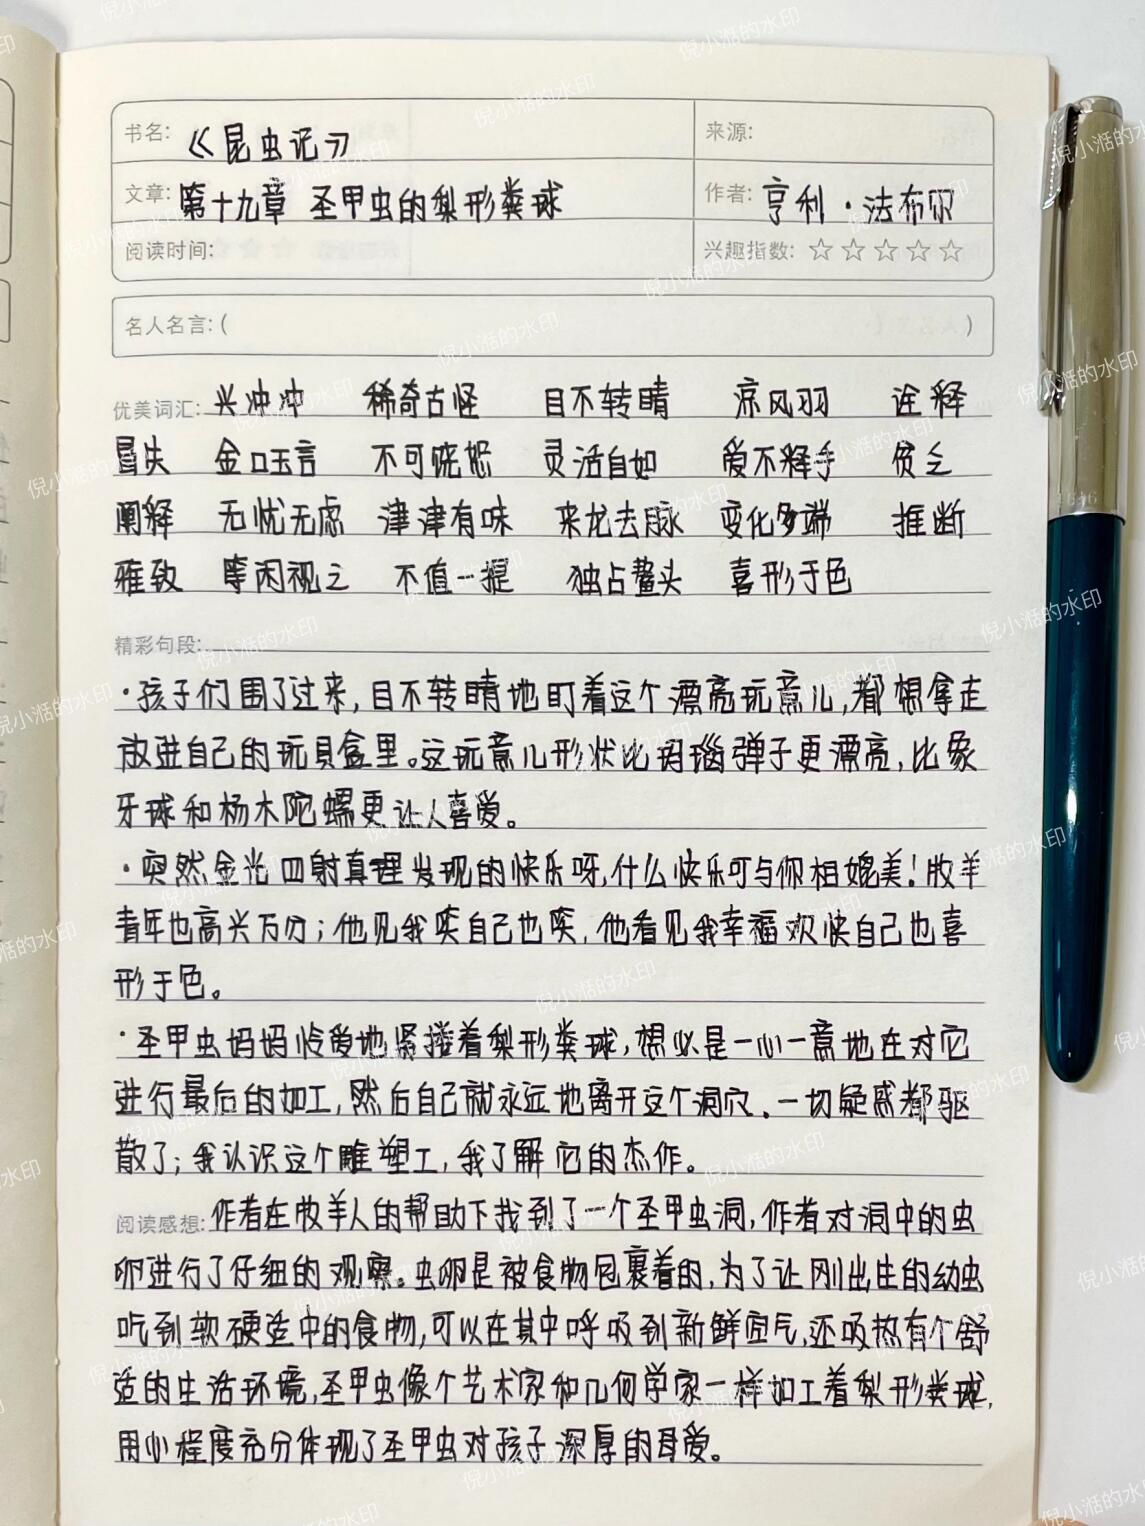 书名: 《昆虫记》 来源:
文章: 第十九章 圣甲虫的梨形粪球 作者: 亨利·法布尔
阅读时间: 兴趣指数: ☆☆☆☆☆
名人名言: ( )
优美词汇: 兴冲冲 稀奇古怪 目不转睛 凉风羽 诠释
冒失 金口玉言 不可饶恕 灵活自如 爱不释手 贫乏
阐释 无忧无虑 津津有味 来龙去脉 变化多端 推断
雅致 等闲视之 不值一提 独占鳌头 喜形于色
精彩句段:
·孩子们围了过来,目不转睛地盯着这个漂亮玩意儿,都想拿走
放进自己的玩具盒里。这玩意儿形状比玛瑙弹子更漂亮,比象
牙球和杨木陀螺更让人喜爱。
·突然金光四射真理发现的快乐呀,什么快乐可与你相媲美!牧羊
青年也高兴万分;他见我笑自己也笑,他看见我幸福欢快自己也喜
形于色。
·圣甲虫妈妈怜爱地紧搂着梨形粪球,想必是一心一意地在对它
进行最后的加工,然后自己就永远地离开这个洞穴。一切疑惑都驱
散了;我认识这个雕塑工,我了解它的杰作。
阅读感想: 作者在牧羊人的帮助下找到了一个圣甲虫洞,作者对洞中的虫
卵进行了仔细的观察。虫卵是被食物包裹着的,为了让刚出生的幼虫
吃到软硬适中的食物,可以在其中呼吸到新鲜空气,还吸热有个舒
适的生活环境,圣甲虫像个艺术家和几何学家一样加工着梨形粪球,
用心程度充分体现了圣甲虫对孩子深厚的母爱。
倪小湉的水印